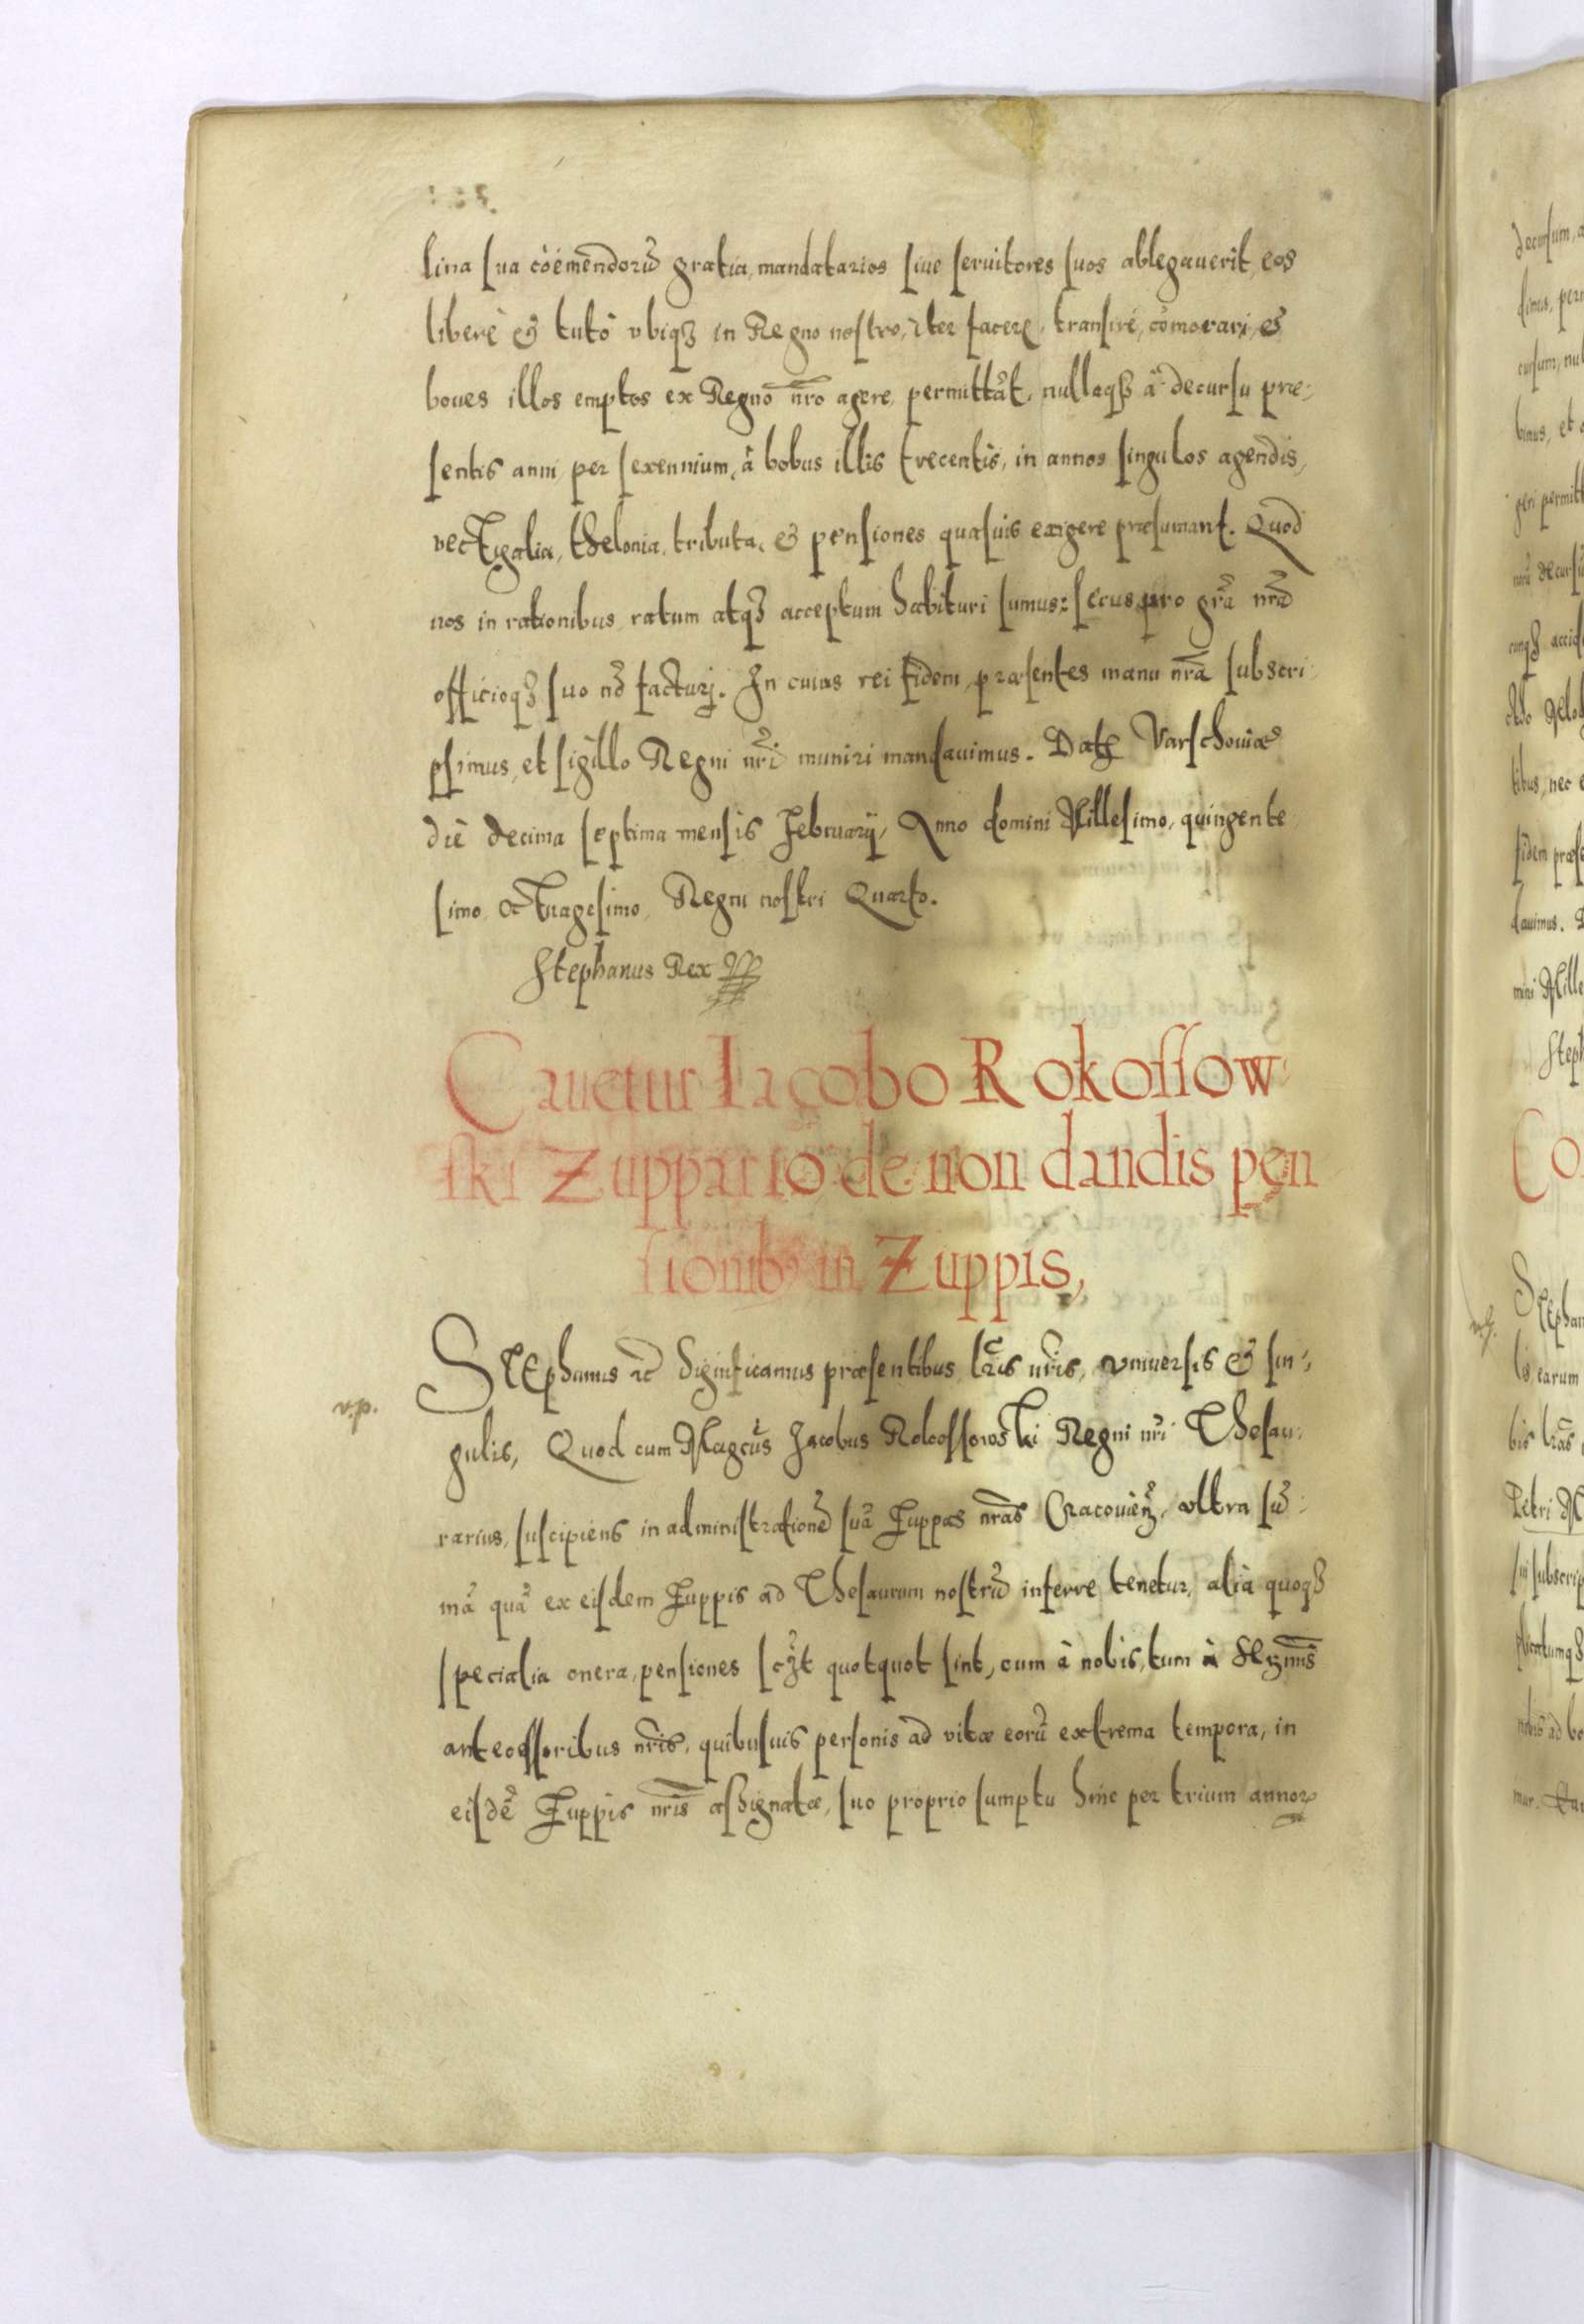 lina sua coëmendorũ gratia, mandatarios siue seruitores suos ablegauerit, eos
liberè & tutò vbiqꝫ in Regno nostro, iter facere, transire, cõmorari, &
boues illos emptos ex Regno nr̃o agere, permittãt, nullaqꝫ à decursu præ,
sentis anni, per sexennium, à bobus illis trecentis, in annos singulos agendis,
vectigalia, thelonia, tributa, & pensiones quasuis exigere præsumant. Quod
nos in rationibus, ratum atqꝫ acceptum habituri sumus: secus pro gr̃a nr̃a
officioqꝫ suo nõ facturj. In cuius rei fidem, præsentes manu nr̃a subscri,
psimus, et sigillo Regni nr̃i muniri mandauimus. Datꝫ Varschouiæ
die decima septima mensis Februarij, Anno domini Millesimo, quingente,
simo, octuagesimo, Regni nostri Quarto.
Stephanus Rex
Cauetur Iacobo Rokossow,
ski Zuppario de non dandis pen
sionibꝰ in Zuppis,
STEphanus ꝛc̃ Significamus præsentibus lr̃is nr̃is, vniuersis & sin,
v.p.
gulis, Quod cum Magcũs Jacobus Rokossowski Regni nr̃i Thesau,
rarius, suscipiens in administrationẽ suã Zuppas nr̃as Cracouieñ, vltra sũ,
mã quã ex eisdem Zuppis ad Thesaurum nostrũ inferre tenetur, alia quoqꝫ
specialia onera, pensiones sczt quotquot sint, cum à nobis, tum à
antecessoribus nr̃is, quibusuis personis ad vitæ eorũ extrema tempora, in
eisdẽ Zuppis nr̃is assignatæ, suo proprio sumptu hinc per trium annoꝝ